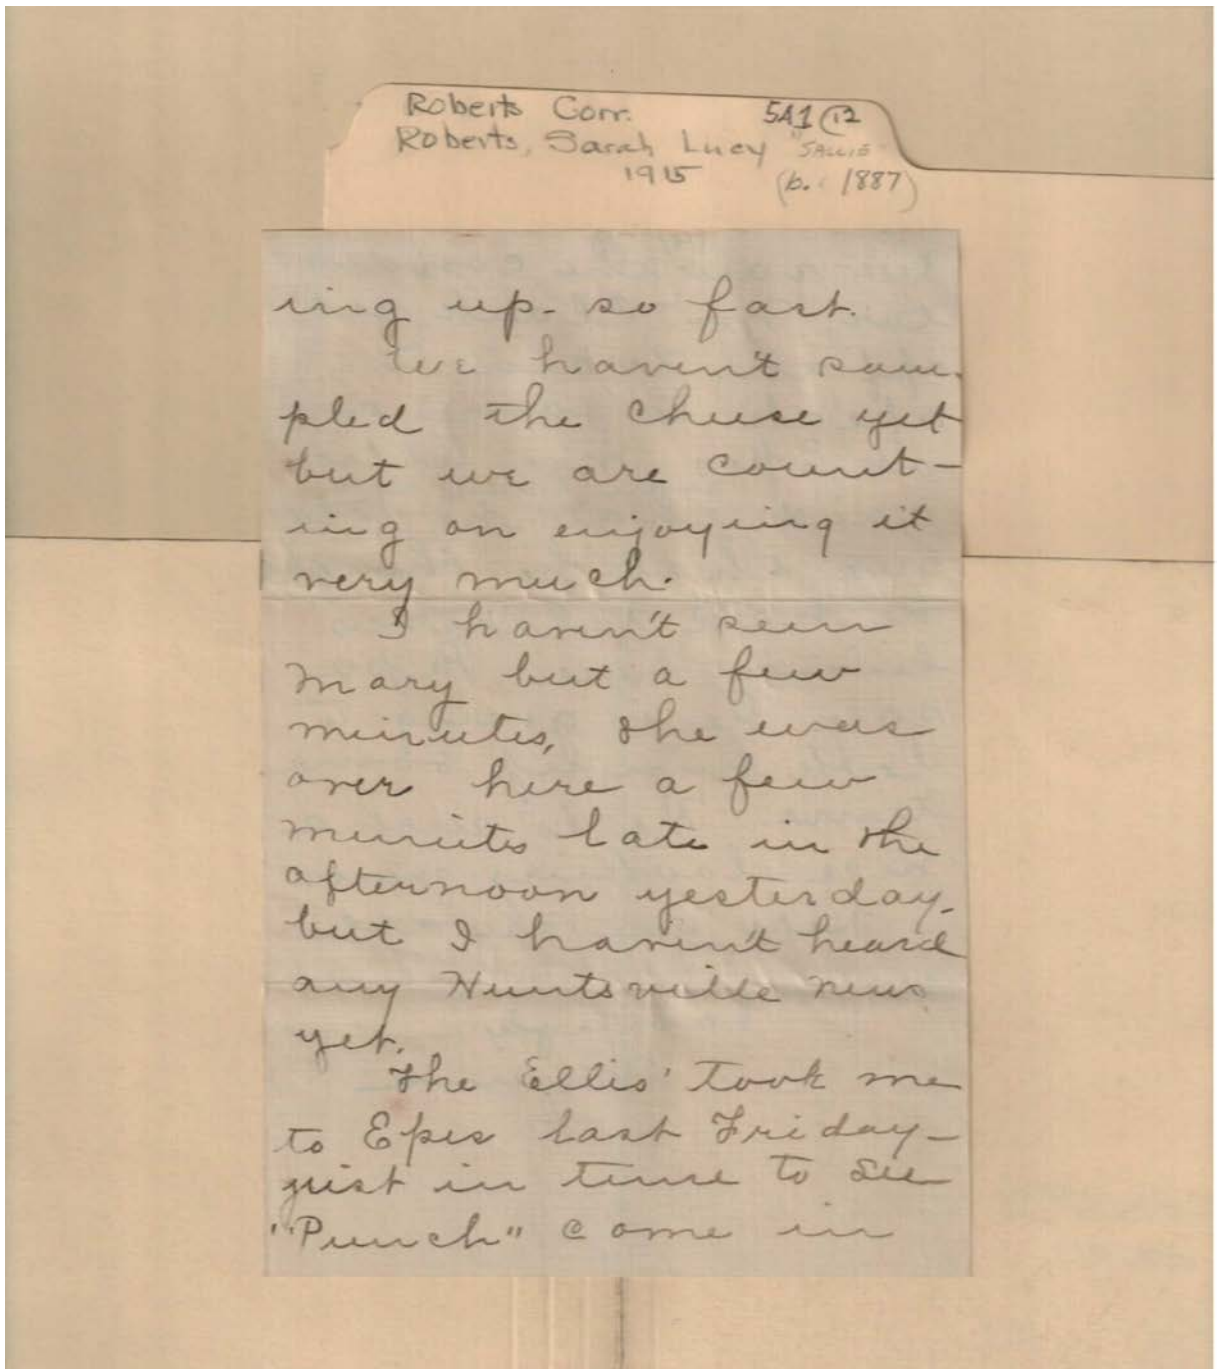 Roberts Corr. 5A1 (12
Roberts, Sarah Lucy "SALLIE"
1915 (b. 1887)
ing up so fast.
We haven't sam-
pled the cheese yet
but we are count-
ing on enjoying it
very much.
I haven't seen
Mary but a few
minutes, She was
over here a few
minits late in the
afternoon yesterday,
but I haven't heard
any Huntsville news
yet.
The Ellis' took me
to Epes last Friday—
just in time to see
"Punch" come in